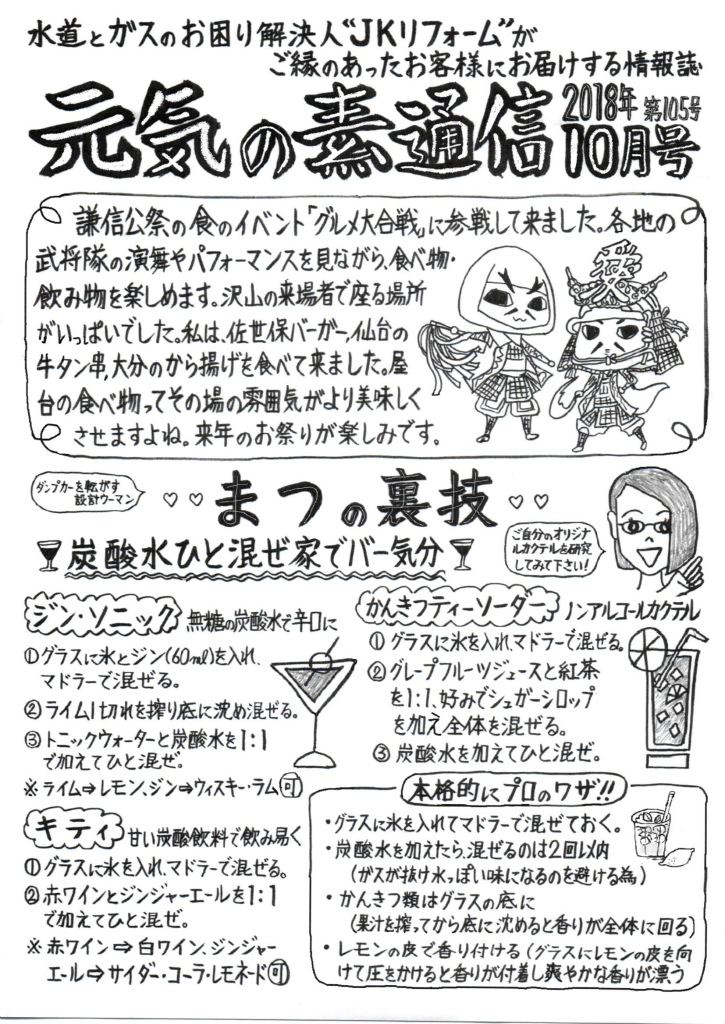 水道とガスのお困り解決人"JKリフォーム"が
ご縁のあったお客様にお届けする情報誌
元気の素通信 2018年 第105号 10月号
謙信公祭の食のイベント「グルメ大合戦」に参戦して来ました。各地の
武将隊の演舞やパフォーマンスを見ながら、食べ物・
飲み物を楽しめます。沢山の来場者で座る場所
がいっぱいでした。私は、佐世保バーガー、仙台の
牛タン串、大分のから揚げを食べて来ました。屋
台の食べ物ってその場の雰囲気がより美味しく
させますよね。来年のお祭りが楽しみです。
愛
ダンプカーを転がす
設計ウーマン
♡♡まつの裏技♡♡
炭酸水ひと混ぜ家でバー気分
ご自分のオリジナ
ルカクテルを研究
してみて下さい!
ジン・ソニック 無糖の炭酸水で辛口に
①グラスに氷とジン(60ml)を入れ、
マドラーで混ぜる。
②ライム1切れを搾り底に沈め混ぜる。
③トニックウォーターと炭酸水を1:1
で加えてひと混ぜ。
※ライム⇒レモン、ジン⇒ウィスキー・ラム可
キティ 甘い炭酸飲料で飲み易く
①グラスに氷を入れ、マドラーで混ぜる。
②赤ワインとジンジャーエールを1:1
で加えてひと混ぜ。
※赤ワイン⇒白ワイン、ジンジャー
エール⇒サイダー・コーラ・レモネード可
かんきつティーソーダー ノンアルコールカクテル
①グラスに氷を入れ、マドラーで混ぜる。
②グレープフルーツジュースと紅茶
を1:1、好みでシュガーシロップ
を加え全体を混ぜる。
③炭酸水を加えてひと混ぜ。
本格的にプロのワザ!!
・グラスに氷を入れてマドラーで混ぜておく。
・炭酸水を加えたら、混ぜるのは2回以内
(ガスが抜け水っぽい味になるのを避ける為)
・かんきつ類はグラスの底に
(果汁を搾ってから底に沈めると香りが全体に回る)
・レモンの皮で香り付ける(グラスにレモンの皮を向
けて圧をかけると香りが付着し爽やかな香りが漂う